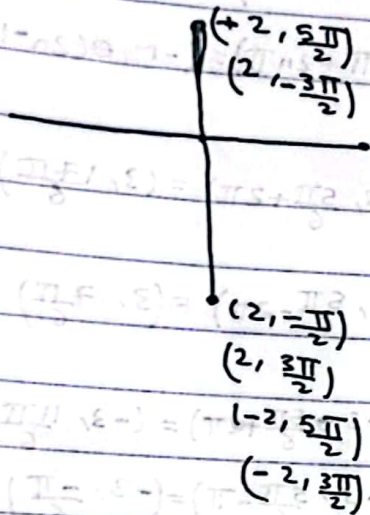 (+2, 5π/2)
(2, -3π/2)
(2, -π/2)
(2, 3π/2)
(-2, 5π/2)
(-2, 3π/2)